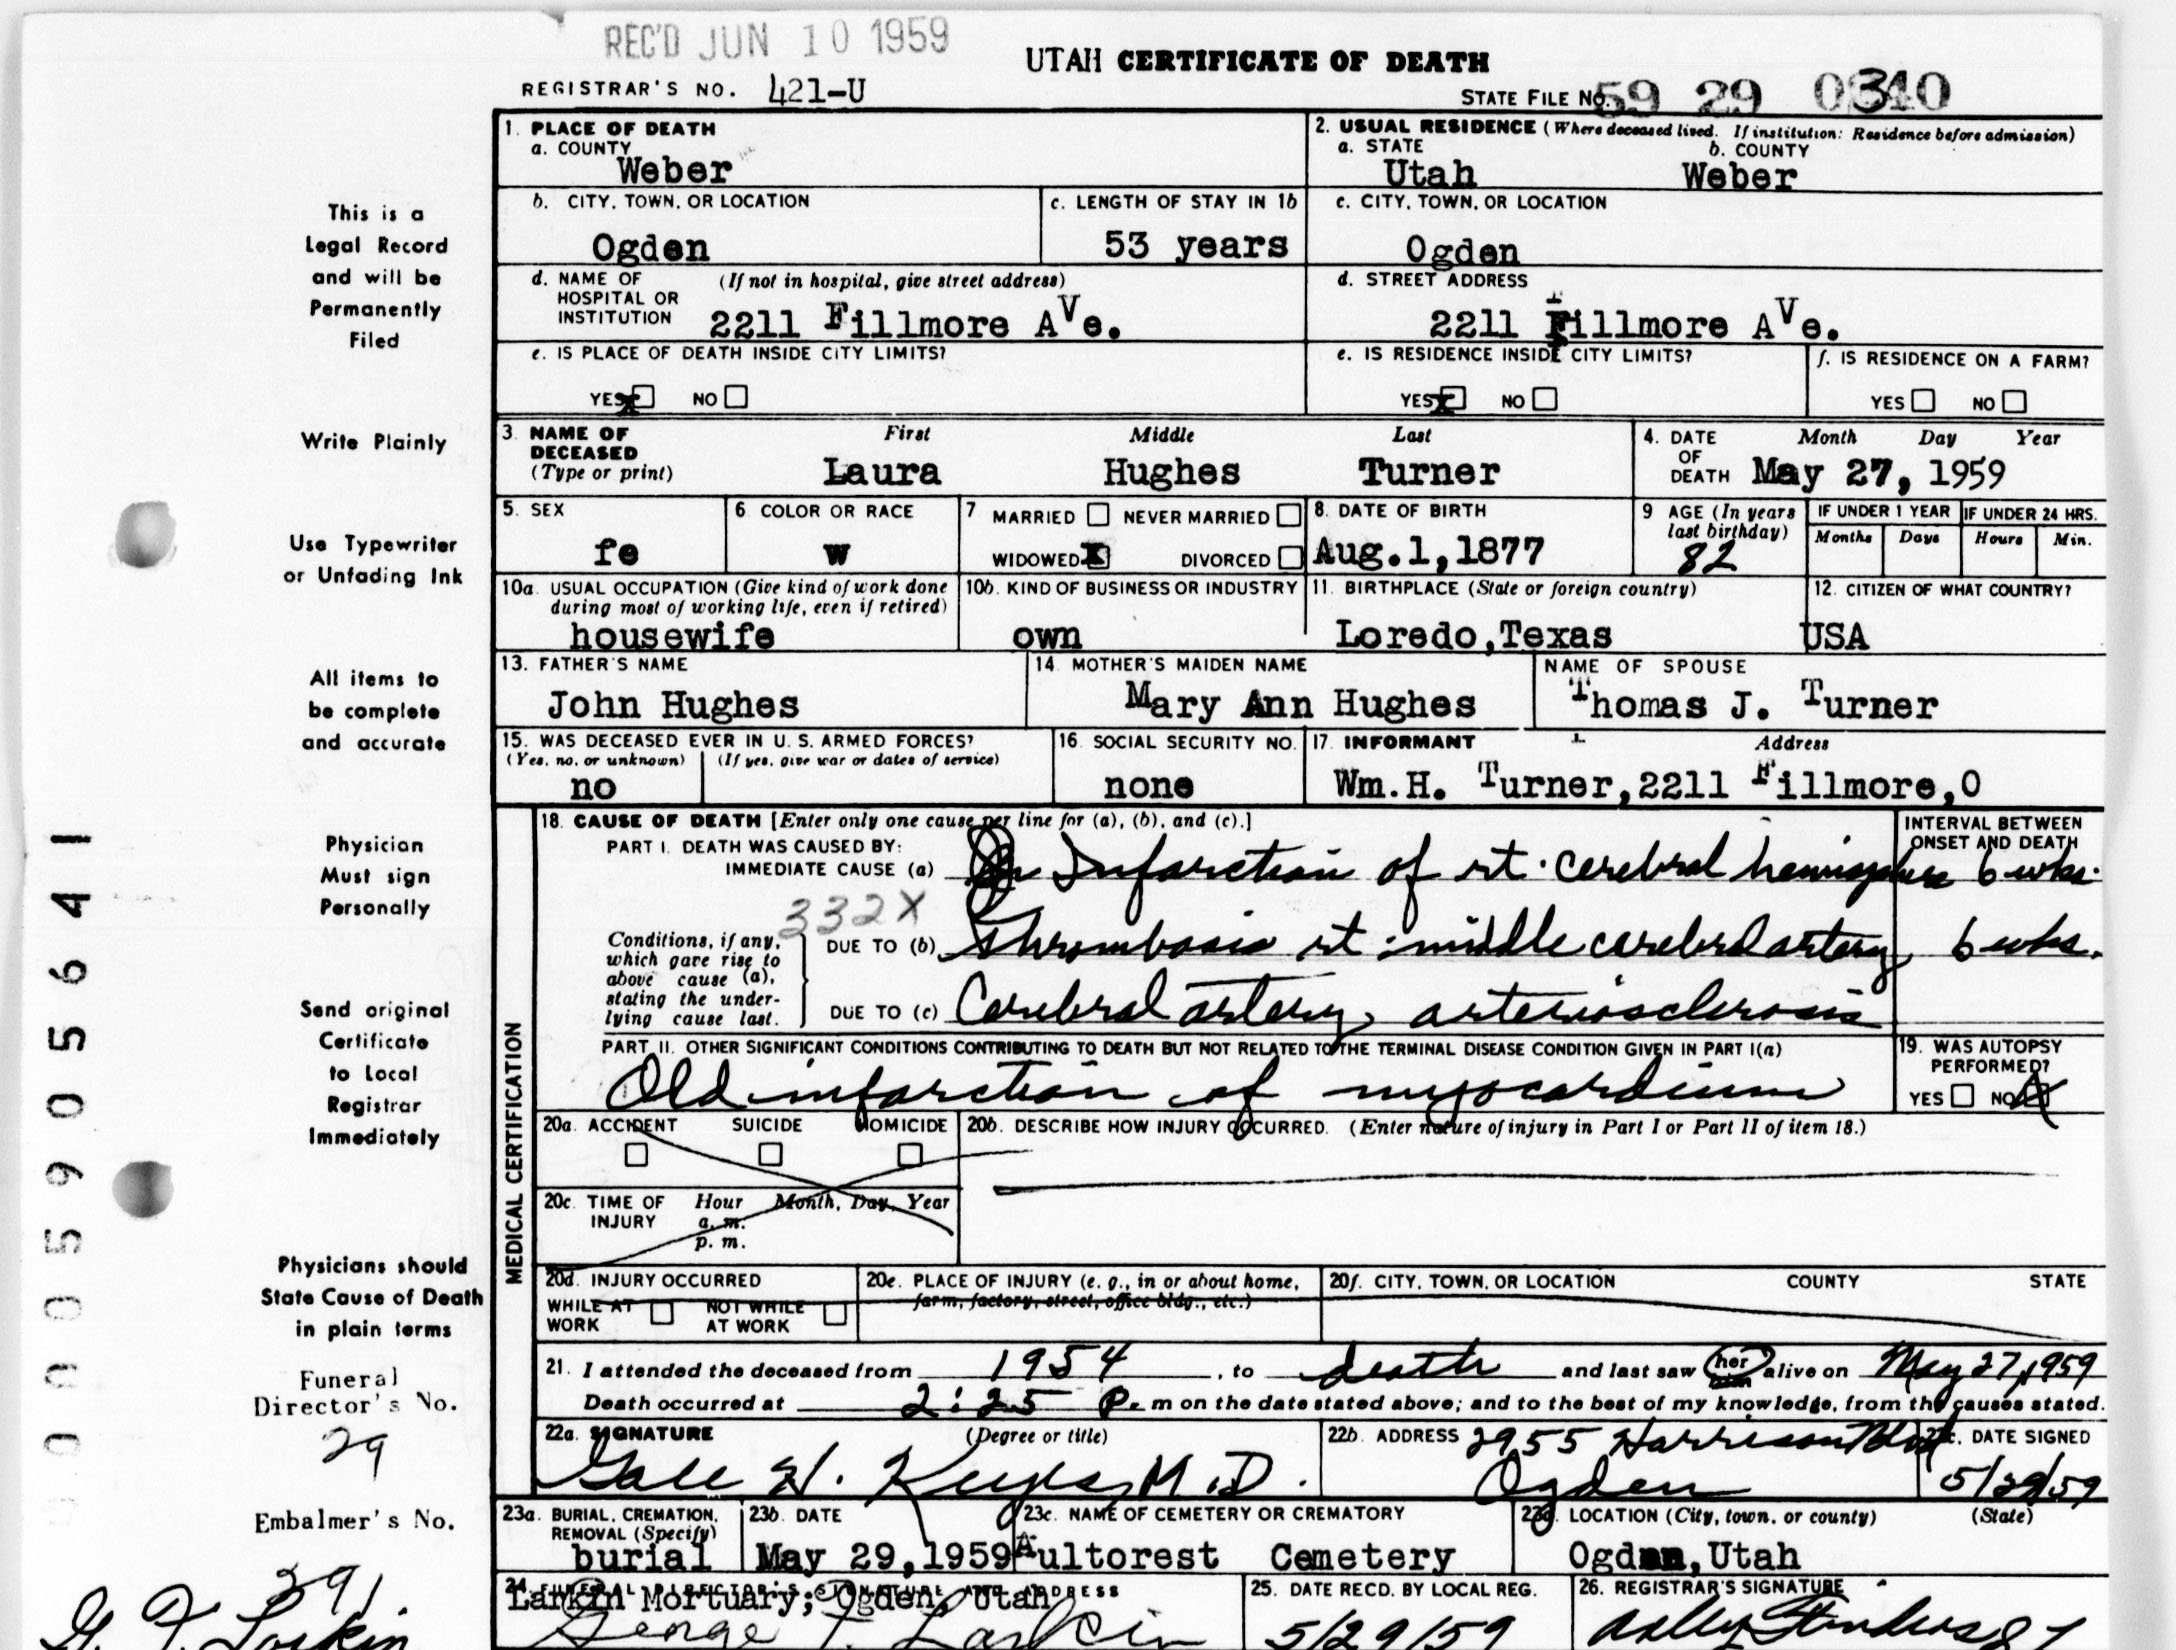 REC'D JUN 10 1959
UTAH CERTIFICATE OF DEATH
REGISTRAR'S NO. 421-U
STATE FILE NO. 59 29 0340
1. PLACE OF DEATH
a. COUNTY
Weber
2. USUAL RESIDENCE (Where deceased lived. If institution: Residence before admission)
a. STATE b. COUNTY
Utah Weber
b. CITY, TOWN, OR LOCATION
Ogden
c. LENGTH OF STAY IN 1b
53 years
c. CITY, TOWN, OR LOCATION
Ogden
d. NAME OF HOSPITAL OR INSTITUTION (If not in hospital, give street address)
2211 Fillmore AVe.
d. STREET ADDRESS
2211 Fillmore AVe.
e. IS PLACE OF DEATH INSIDE CITY LIMITS?
YES x NO
e. IS RESIDENCE INSIDE CITY LIMITS?
YES x NO
f. IS RESIDENCE ON A FARM?
YES NO
3. NAME OF DECEASED (Type or print)
First Middle Last
Laura Hughes Turner
4. DATE OF DEATH Month Day Year
May 27, 1959
5. SEX
fe
6. COLOR OR RACE
w
7 MARRIED NEVER MARRIED
WIDOWED X DIVORCED
8. DATE OF BIRTH
Aug.1,1877
9 AGE (In years last birthday)
82
IF UNDER 1 YEAR
Months Days
IF UNDER 24 HRS.
Hours Min.
10a. USUAL OCCUPATION (Give kind of work done during most of working life, even if retired)
housewife
10b. KIND OF BUSINESS OR INDUSTRY
own
11. BIRTHPLACE (State or foreign country)
Loredo,Texas
12. CITIZEN OF WHAT COUNTRY?
USA
13. FATHER'S NAME
John Hughes
14. MOTHER'S MAIDEN NAME
Mary Ann Hughes
NAME OF SPOUSE
Thomas J. Turner
15. WAS DECEASED EVER IN U. S. ARMED FORCES?
(Yes, no, or unknown) (If yes, give war or dates of service)
no
16. SOCIAL SECURITY NO.
none
17. INFORMANT Address
Wm.H. Turner,2211 Fillmore,O
MEDICAL CERTIFICATION
18. CAUSE OF DEATH [Enter only one cause per line for (a), (b), and (c).]
INTERVAL BETWEEN ONSET AND DEATH
PART I. DEATH WAS CAUSED BY:
IMMEDIATE CAUSE (a) Infarction of rt. cerebral hemisphere 6 wks.
332X
Conditions, if any, which gave rise to above cause (a), stating the underlying cause last.
DUE TO (b) Thrombosis rt. middle cerebral artery 6 wks.
DUE TO (c) Cerebral artery arteriosclerosis
PART II. OTHER SIGNIFICANT CONDITIONS CONTRIBUTING TO DEATH BUT NOT RELATED TO THE TERMINAL DISEASE CONDITION GIVEN IN PART I(a)
Old infarction of myocardium
19. WAS AUTOPSY PERFORMED?
YES NO X
20a. ACCIDENT SUICIDE HOMICIDE
20b. DESCRIBE HOW INJURY OCCURRED. (Enter nature of injury in Part I or Part II of item 18.)
20c. TIME OF INJURY Hour Month, Day, Year
a. m.
p. m.
20d. INJURY OCCURRED
WHILE AT WORK NOT WHILE AT WORK
20e. PLACE OF INJURY (e. g., in or about home, farm, factory, street, office bldg., etc.)
20f. CITY, TOWN, OR LOCATION COUNTY STATE
21. I attended the deceased from 1954, to death and last saw her him alive on May 27, 1959
Death occurred at 2:25 P. m on the date stated above; and to the best of my knowledge, from the causes stated.
22a. SIGNATURE (Degree or title)
Gale H. Keyes M.D.
22b. ADDRESS 2955 Harrison Blvd
Ogden
22c. DATE SIGNED
5/29/59
23a. BURIAL, CREMATION, REMOVAL (Specify)
burial
23b. DATE
May 29,1959
23c. NAME OF CEMETERY OR CREMATORY
Aultorest Cemetery
23d. LOCATION (City, town, or county) (State)
Ogden,Utah
24. FUNERAL DIRECTOR'S SIGNATURE AND ADDRESS
Larkin Mortuary; Ogden, Utah
George T. Larkin
25. DATE RECD. BY LOCAL REG.
5/29/59
26. REGISTRAR'S SIGNATURE
This is a
Legal Record
and will be
Permanently
Filed
Write Plainly
Use Typewriter
or Unfading Ink
All items to
be complete
and accurate
Physician
Must sign
Personally
Send original
Certificate
to Local
Registrar
Immediately
Physicians should
State Cause of Death
in plain terms
Funeral
Director's No.
29
Embalmer's No.
391
G. T. Larkin
0005905641